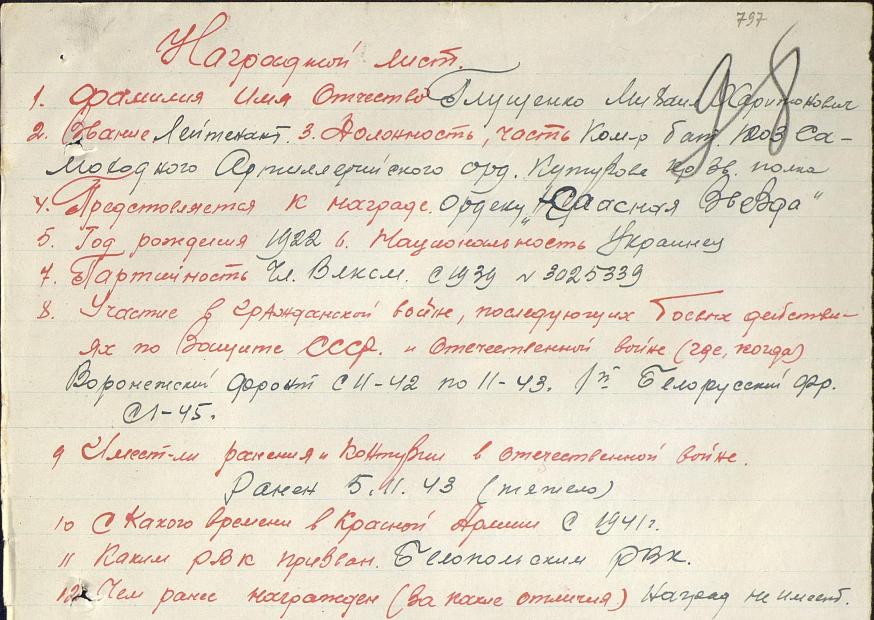 797
98
Наградной лист.
1. Фамилия Имя Отчество Глущенко Михаил Харитонович
2. Звание Лейтенант. 3. Должность, часть Ком-р бат. 1203 Са-
моходного Артиллерийского орд. Кутузова кр. зв. полка
4. Представляется к награде. Ордену „Красная Звезда"
5. Год рождения 1922 6. Национальность Украинец
7. Партийность Чл. Влксм. с 1939 № 3025339
8. Участие в гражданской войне, последующих боевых действи-
ях по защите СССР. и отечественной войне (где, когда)
Воронежский фронт с 11-42 по 11-43. 1й Белорусский фр.
с 1-45.
9 Имеет-ли ранения и контузии в отечественной войне.
Ранен 5.11.43 (тяжело)
10 С Какого времени в Красной Армии С 1941 г.
11 Каким РВК призван. Белопольским РВК.
12 Чем ранее награжден (за какие отличия) Наград не имеет.